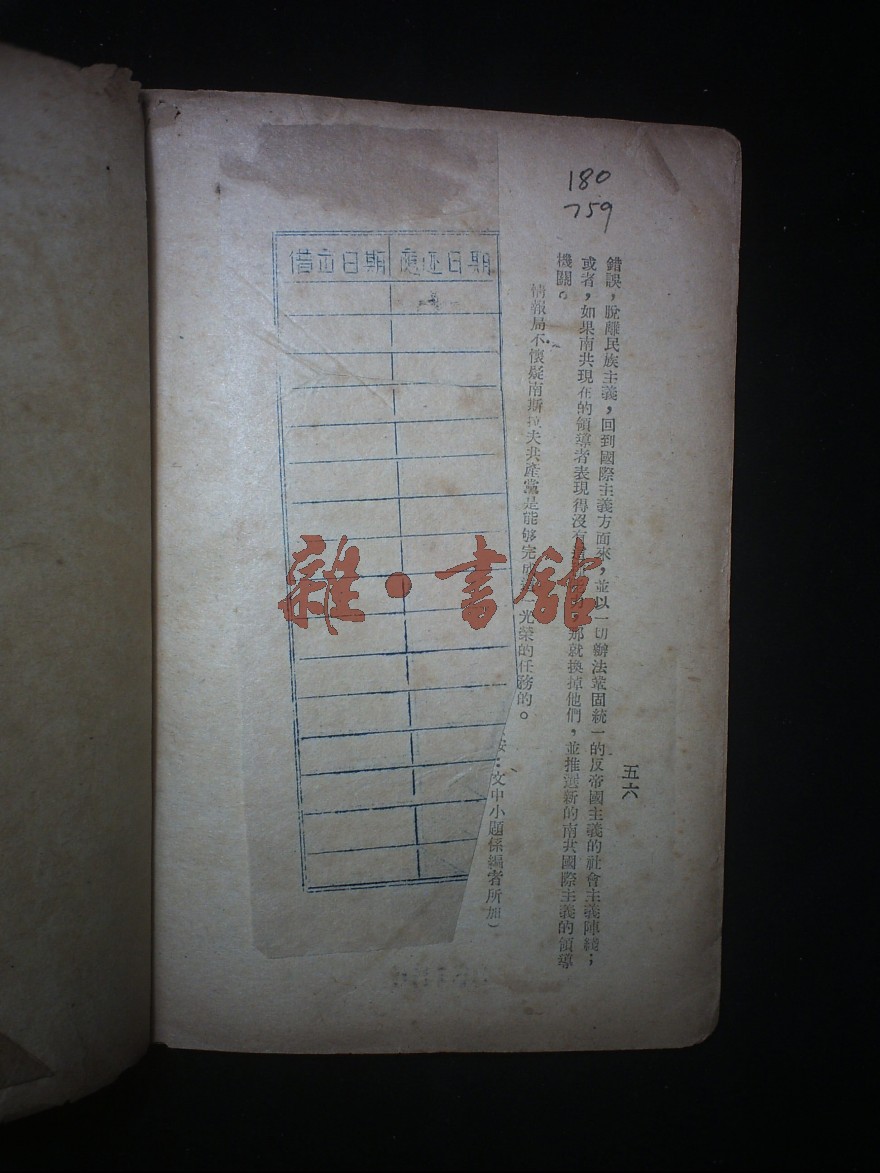 180
759
五六
錯誤，脫離民族主義，回到國際主義方面來，並以一切辦法鞏固統一的反帝國主義的社會主義陣綫；
或者，如果南共現在的領導者表現得沒有那就換掉他們，並推選新的南共國際主義的領導
機關。
情報局不懷疑南斯拉夫共產黨是能够完成光榮的任務的。
按：文中小題係編者所加）
借出日期 應还日期
雜·書館